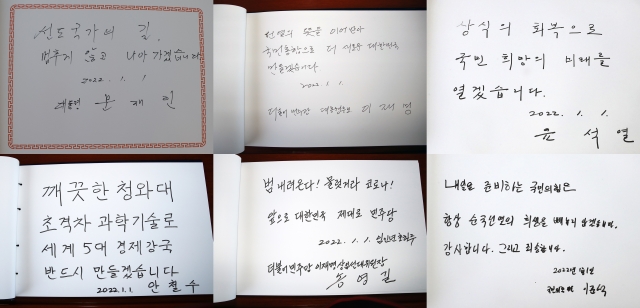 선도국가의 길,
멈추지 않고 나아가겠습니다
2022. 1. 1
대통령 문재인
선열의 뜻을 이어받아
국민통합으로 더 새로운 대한민국
만들겠습니다
2022. 1. 1.
더불어민주당 대통령후보 이재명
상식의 회복으로
국민 희망의 미래를
열겠습니다.
2022. 1. 1.
윤석열
깨끗한 청와대
초격차 과학기술로
세계 5대 경제강국
반드시 만들겠습니다
2022.1.1 안철수
범 내려온다! 물렀거라 코로나!
앞으로 대한민국 제대로 민주당
2022. 1. 1.
더불어민주당 이재명 상임선대위원장
송영길
내일을 준비하는 국민의힘은
항상 순국선열의 희생을
감사합니다. 그리고 죄송합니다.
2022년 1월 1일
이준석